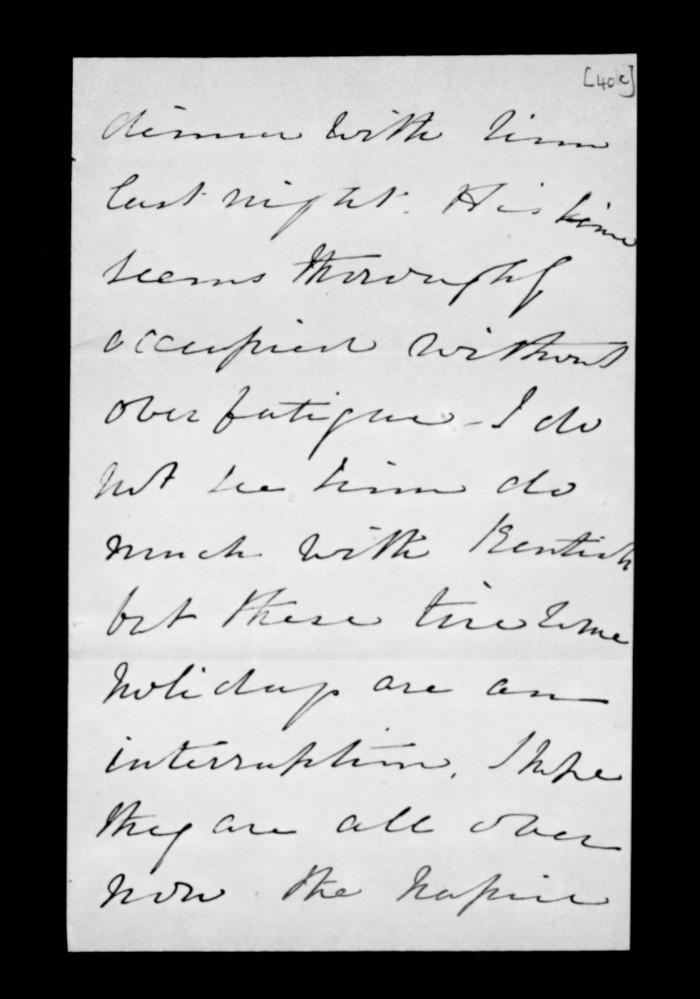 [40k]
dinner with him
last night. His time
seems thoroughly
occupied without
over fatigue - I do
not see him do
much with Kentish
but these tiresome
holidays are an
interruption. I hope
they are all over
now the Napier